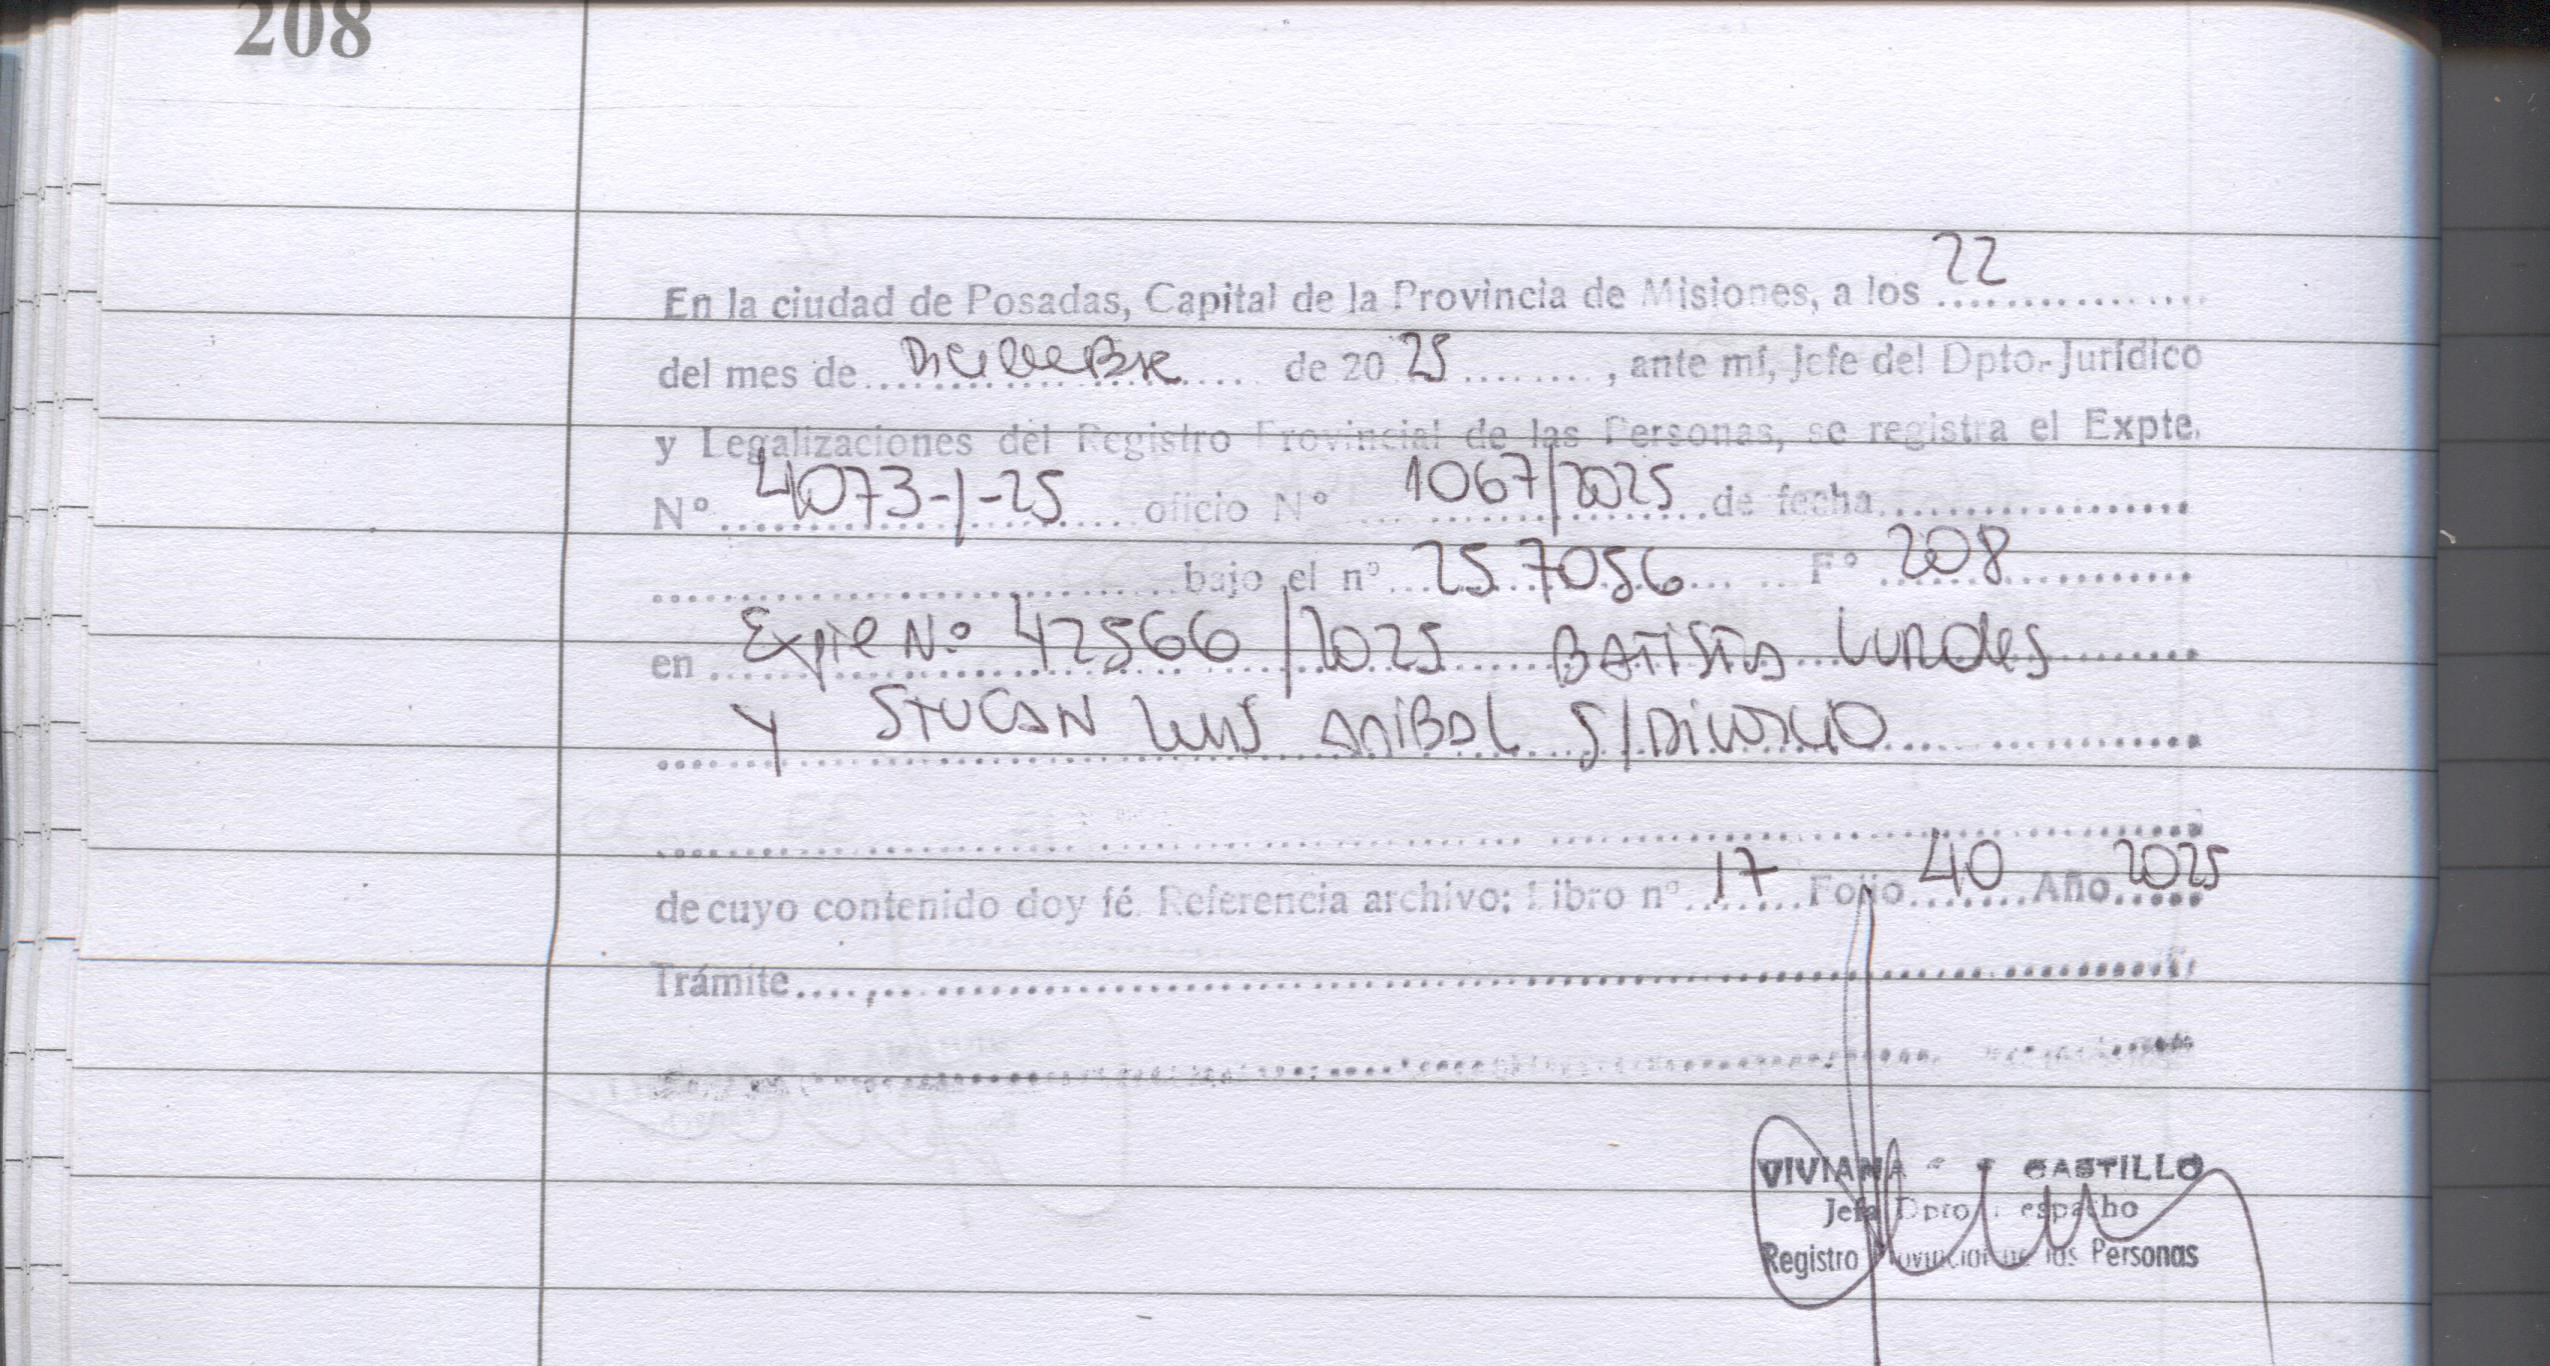 208
En la ciudad de Posadas, Capital de la Provincia de Misiones, a los 22
del mes de Diciembre de 20 25 , ante mí, Jefe del Dpto. Jurídico
y Legalizaciones del Registro Provincial de las Personas, se registra el Expte.
Nº 4073-1-25 oficio Nº 1067/2025 de fecha
bajo el nº 257056 Fº 208
en Expte Nº 42566/2025 BATISTA Lurdes
Y STUCAN LUIS ANIBAL S/DIVORCIO
de cuyo contenido doy fé. Referencia archivo: Libro nº 17 Folio 40 Año 2025
Trámite
VIVIANA CASTILLO
Jefa Dpto. Despacho
Registro Provincial de las Personas